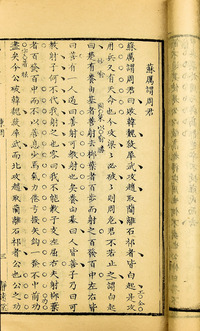 蘇厲謂周君
蘇厲謂周君曰敗韓魏殺犀武攻趙取藺離石祁者皆白起是攻
用兵又有天命也今攻梁梁必破破則周危君不若止之謂白起
曰楚有養由基者善射去柳葉者百步而射之百發百中左右皆
曰善有一人過曰善射可教射也矣養由基曰人皆善子乃曰可
教射子何不代我射之也客曰我不能教子支左屈右夫射柳葉
者百發百中而不以善息少焉氣力倦弓撥矢鉤一發不中前功
盡矣今公破韓魏殺犀武而北攻趙取藺離石祁者公也公之功